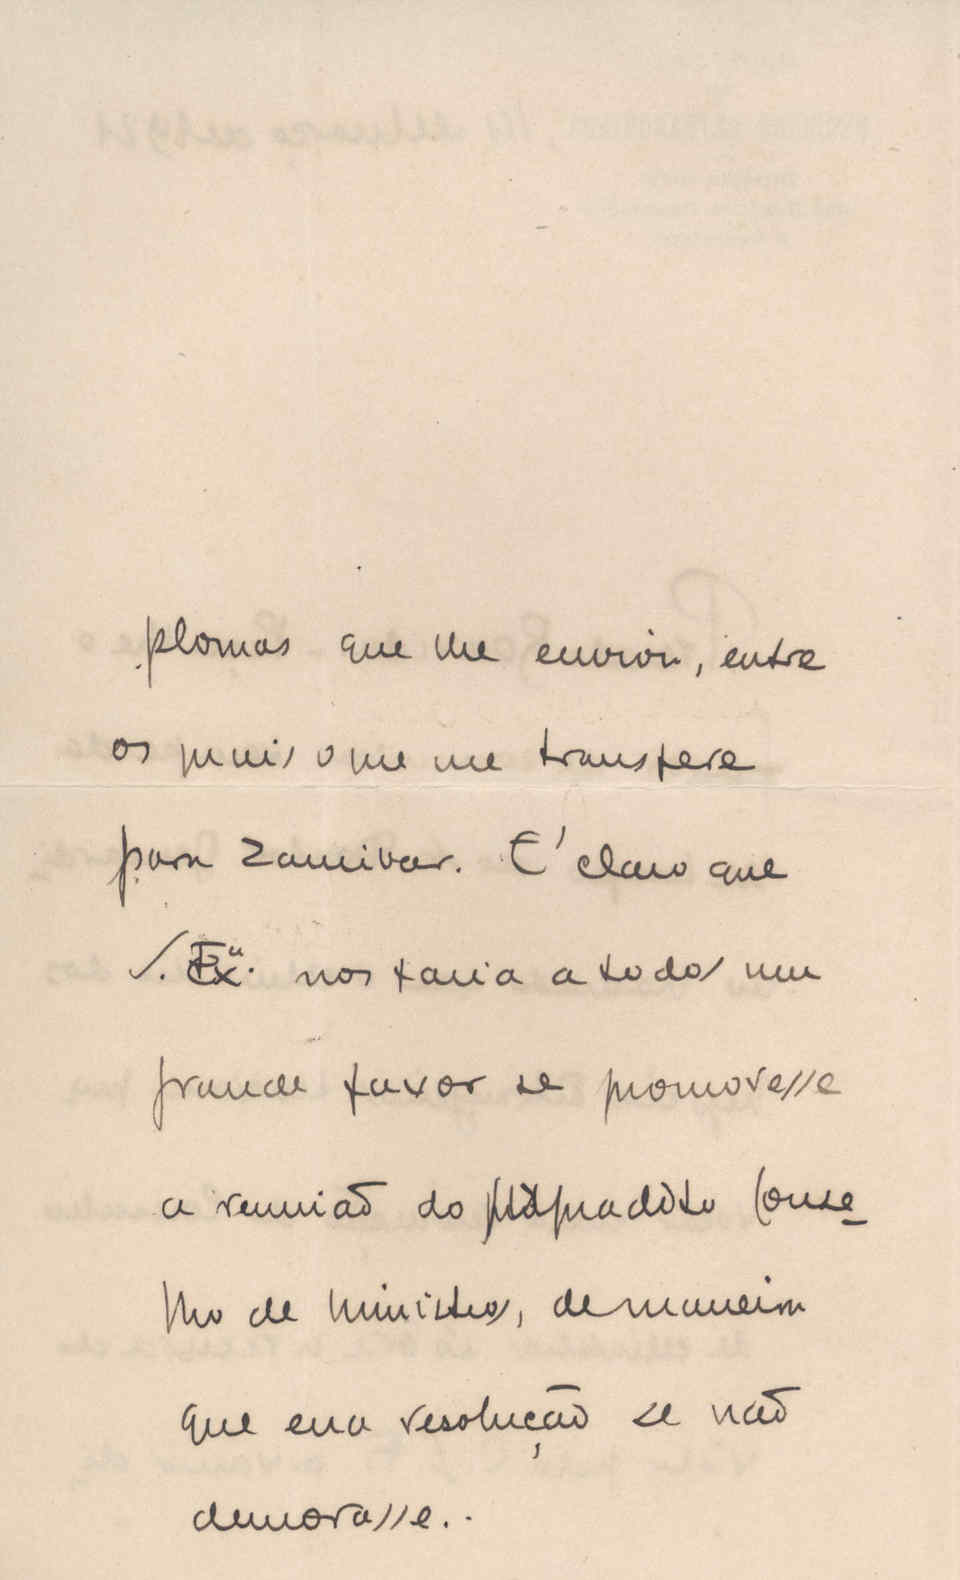 plomas que lhe enviou, entre
os quais o que me transfere
para Zanzibar. E' claro que
S. Exª. nos faria a todos um
grande favor se promovesse
a reunião do dito Conse-
lho de ministros, de maneira
que essa resolução se não
demorasse..